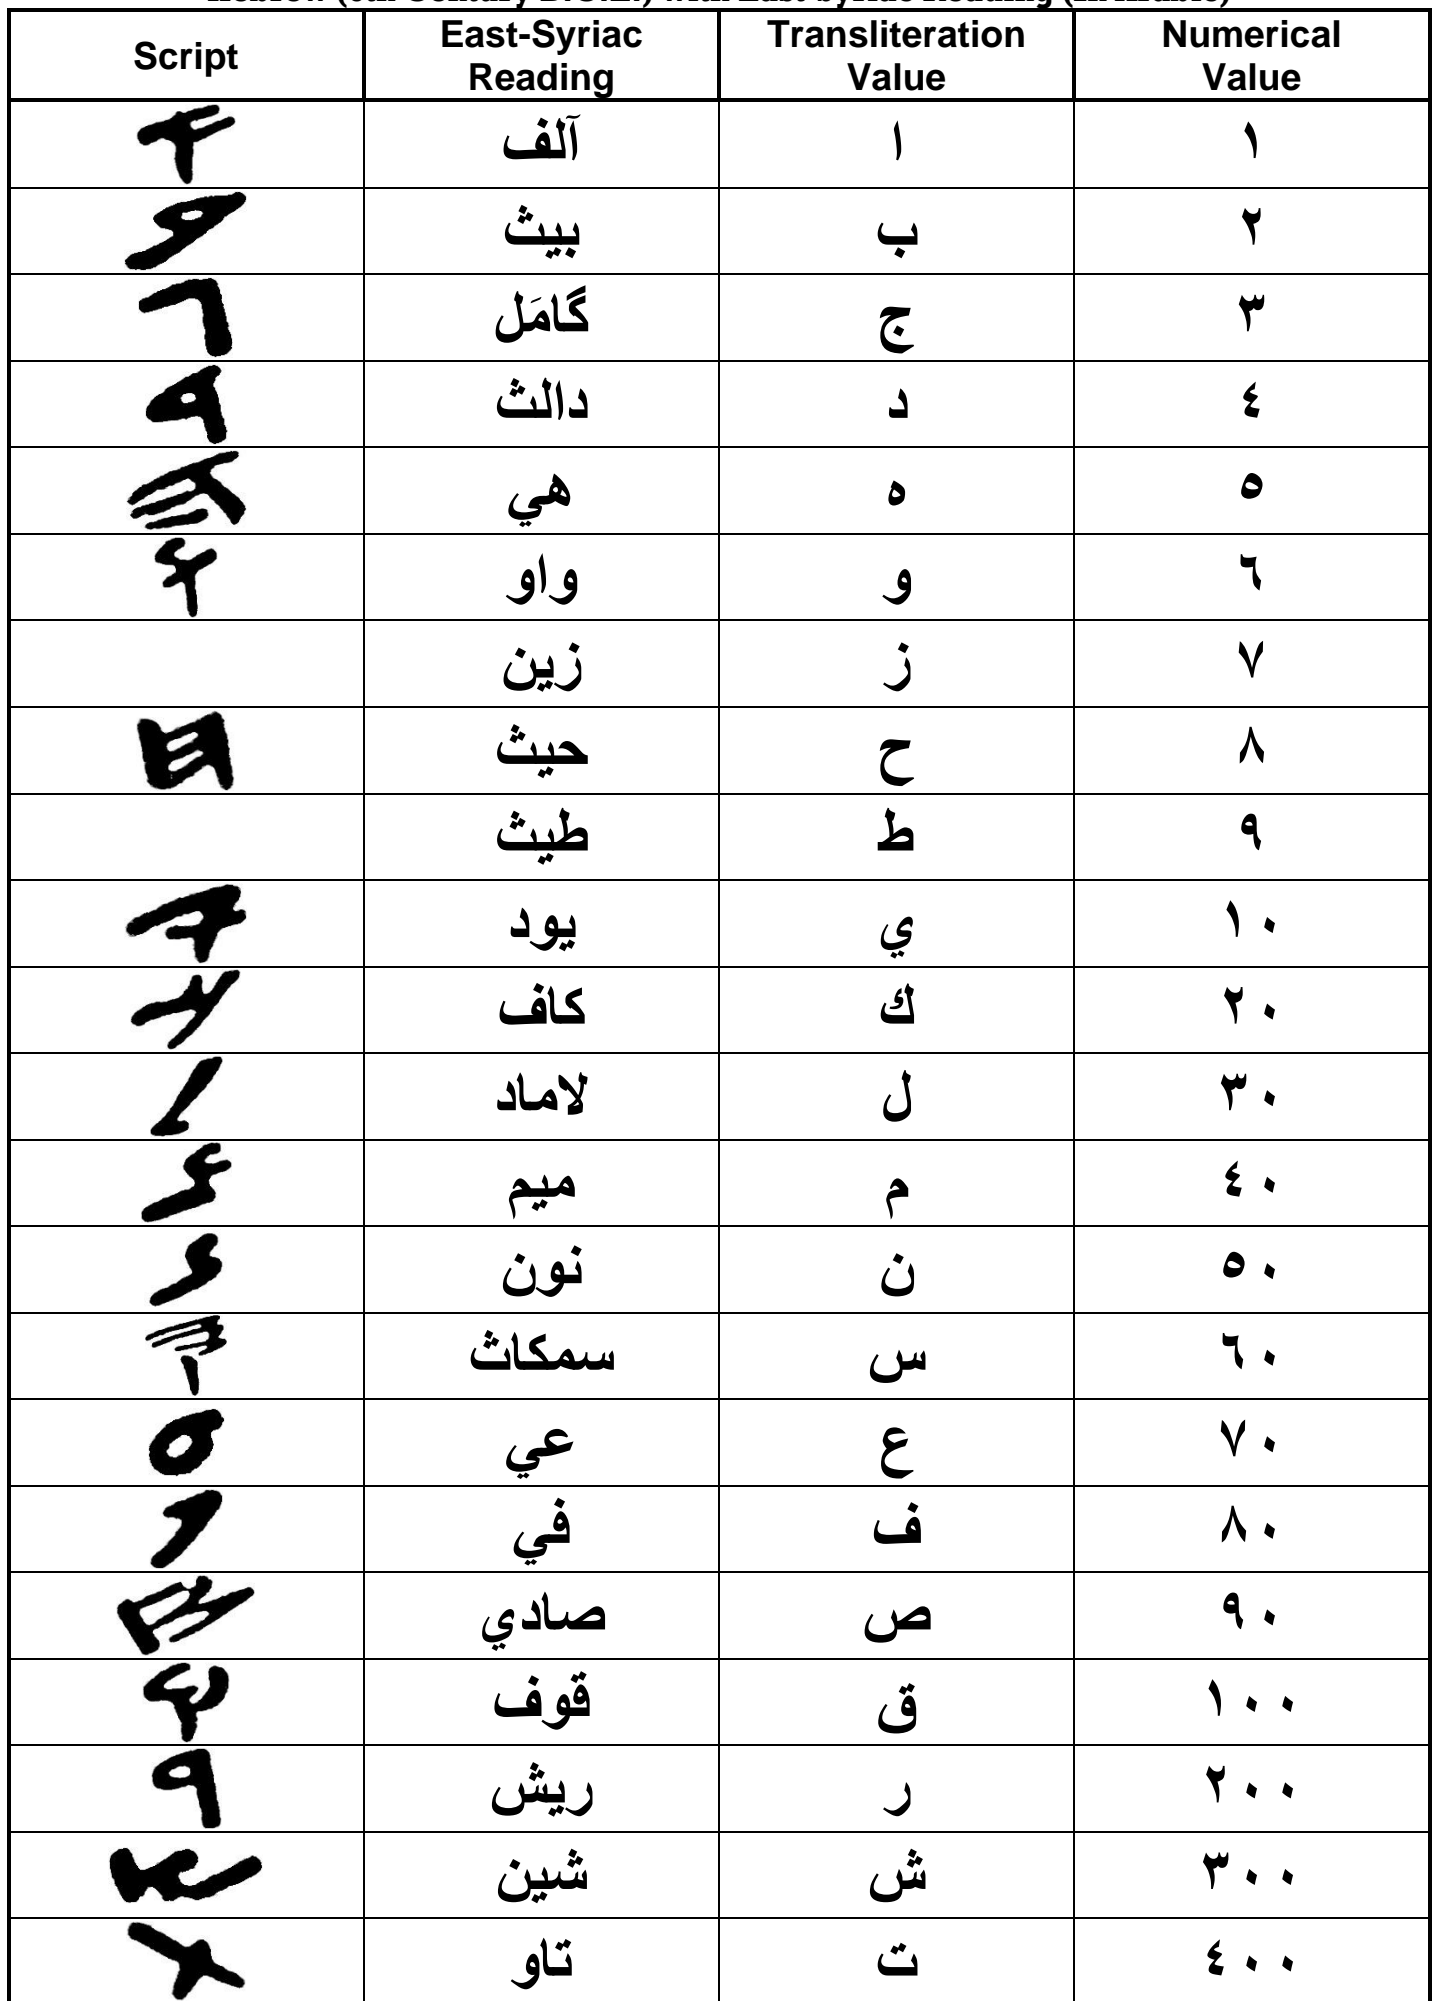 Script East-Syriac Reading Transliteration Value Numerical Value
𐤀 آلف ا ١
𐤁 بيث ب ٢
𐤂 گامَل ج ٣
𐤃 دالث د ٤
𐤄 هي ه ٥
𐤅 واو و ٦
زين ز ٧
𐤇 حيث ح ٨
طيث ط ٩
𐤉 يود ي ١٠
𐤊 كاف ك ٢٠
𐤋 لاماد ل ٣٠
𐤌 ميم م ٤٠
𐤍 نون ن ٥٠
𐤎 سمكاث س ٦٠
𐤏 عي ع ٧٠
𐤐 في ف ٨٠
𐤑 صادي ص ٩٠
𐤒 قوف ق ١٠٠
𐤓 ريش ر ٢٠٠
𐤔 شين ش ٣٠٠
𐤕 تاو ت ٤٠٠